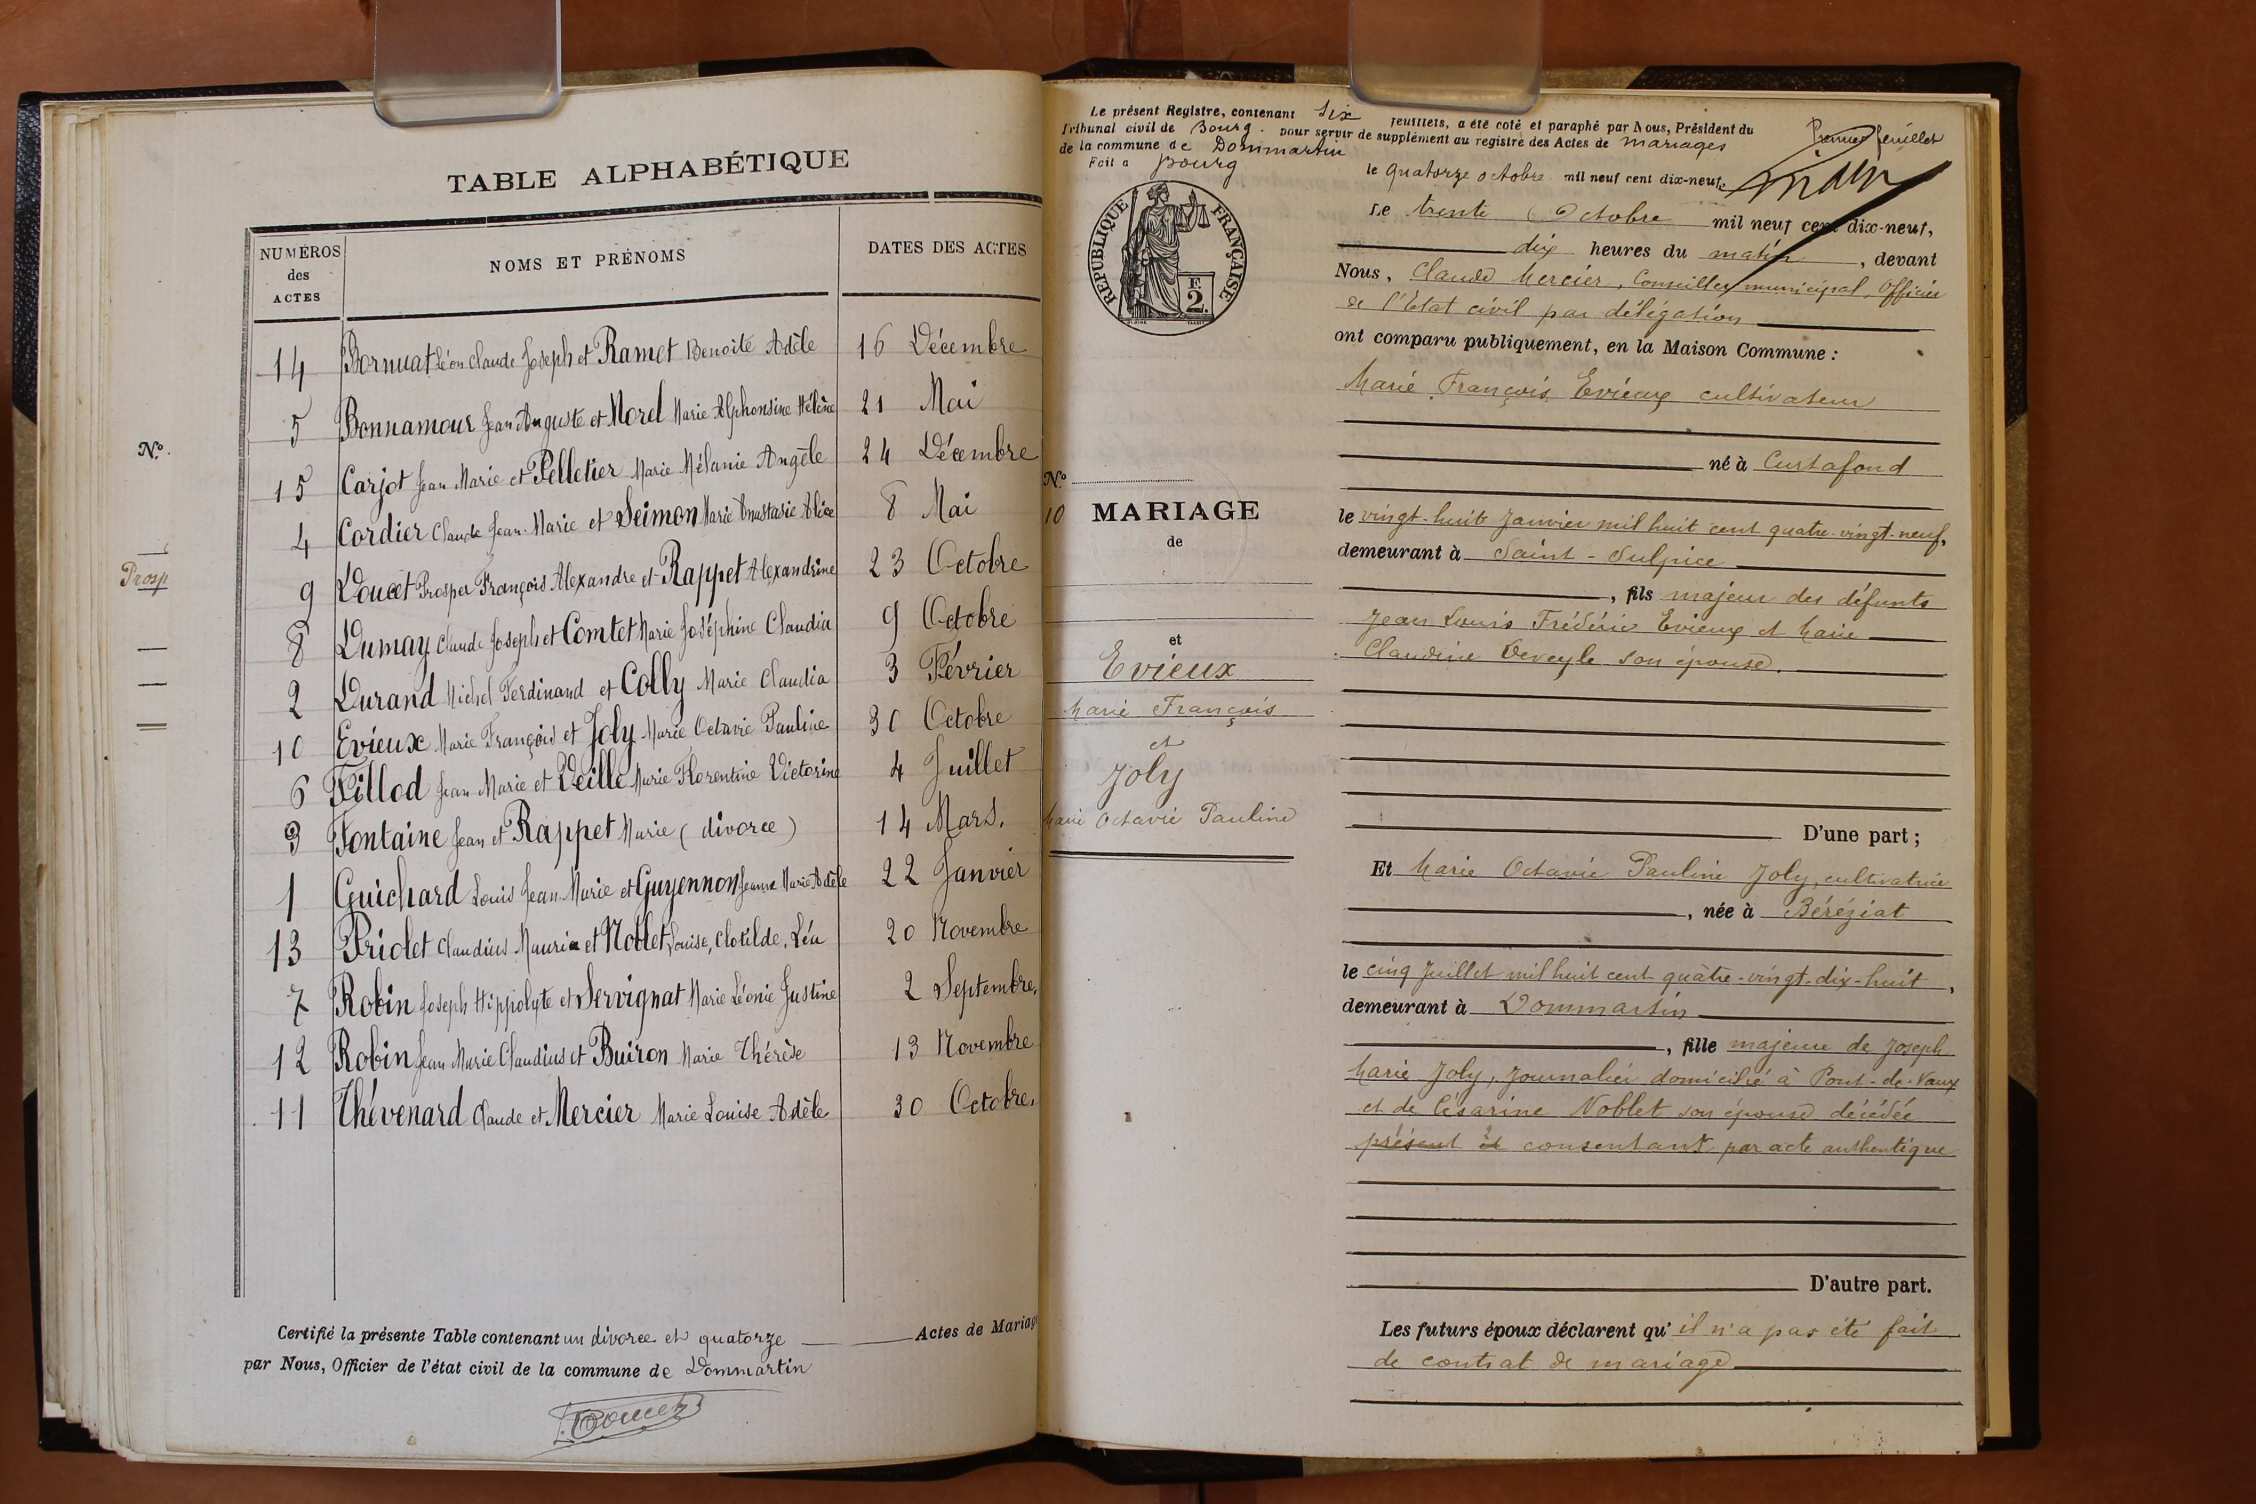 TABLE ALPHABÉTIQUE
NUMÉROS
des
ACTES
NOMS ET PRÉNOMS
DATES DES ACTES
14 Bornuat Léon Claude Joseph et Ramet Benoite Adèle 16 Décembre
5 Bonnamour Jean Auguste et Morel Marie Alphonsine Hélène 21 Mai
15 Carjot Jean Marie et Pelletier Marie Mélanie Angèle 24 Décembre
4 Cordier Claude Jean-Marie et Seimon Marie Anastasie Alice 8 Mai
9 Doucet Prosper François Alexandre et Rappet Alexandrine 23 Octobre
8 Dumay Claude Joseph et Comtet Marie Joséphine Claudia 9 Octobre
2 Durand Michel Ferdinand et Colly Marie Claudia 3 Février
10 Evieux Marie François et Joly Marie Octavie Pauline 30 Octobre
6 Fillod Jean Marie et Veille Marie Florentine Victorine 4 Juillet
3 Fontaine Jean et Rappet Marie (divorce) 14 Mars.
1 Guichard Louis Jean-Marie et Guyennon Jeanne Marie Adèle 22 Janvier
13 Priolet Claudius Maurice et Noblet Louise, Clotilde, Léa 20 Novembre
7 Robin Joseph Hippolyte et Servignat Marie Léonie Justine 2 Septembre,
12 Robin Jean Marie Claudius et Buiron Marie Thérèse 13 Novembre
11 Thévenard Claude et Mercier Marie Louise Adèle 30 Octobre.
Certifié la présente Table contenant un divorce et quatorze Actes de Mariage
par Nous, Officier de l'état civil de la commune de Dommartin
Nº.
Prosp
Le présent Registre, contenant Six feuillets, a été coté et paraphé par Nous, Président du
Tribunal civil de Bourg. pour servir de supplément au registre des Actes de mariages
de la commune de Dommartin
Fait à Bourg le quatorze octobre mil neuf cent dix-neuf.
Premier feuillet
RÉPUBLIQUE FRANÇAISE
F.
2.
Nº
10 MARIAGE
de
et
Evieux
Marie François
et
Joly
Marie Octavie Pauline
Le trente Octobre mil neuf cent dix-neuf,
dix heures du matin, devant
Nous, Claude Mercier, Conseiller municipal, Officier
de l'Etat civil par délégation
ont comparu publiquement, en la Maison Commune :
Marie François Evieux cultivateur
né à Curtafond
le vingt-huit Janvier mil huit cent quatre-vingt-neuf,
demeurant à Saint-Sulpice
, fils majeur des défunts
Jean Louis Frédéric Evieux et Marie
Claudine Veveyle son épouse.
D'une part ;
Et Marie Octavie Pauline Joly, cultivatrice
, née à Béréziat
le cinq Juillet mil huit cent quatre-vingt-dix-huit,
demeurant à Dommartin
, fille majeure de Joseph
Marie Joly, Journalier domicilié à Pont-de-Vaux
et de Césarine Noblet son épouse décédée
présent et consentant par acte authentique
D'autre part.
Les futurs époux déclarent qu'il n'a pas été fait
de contrat de mariage